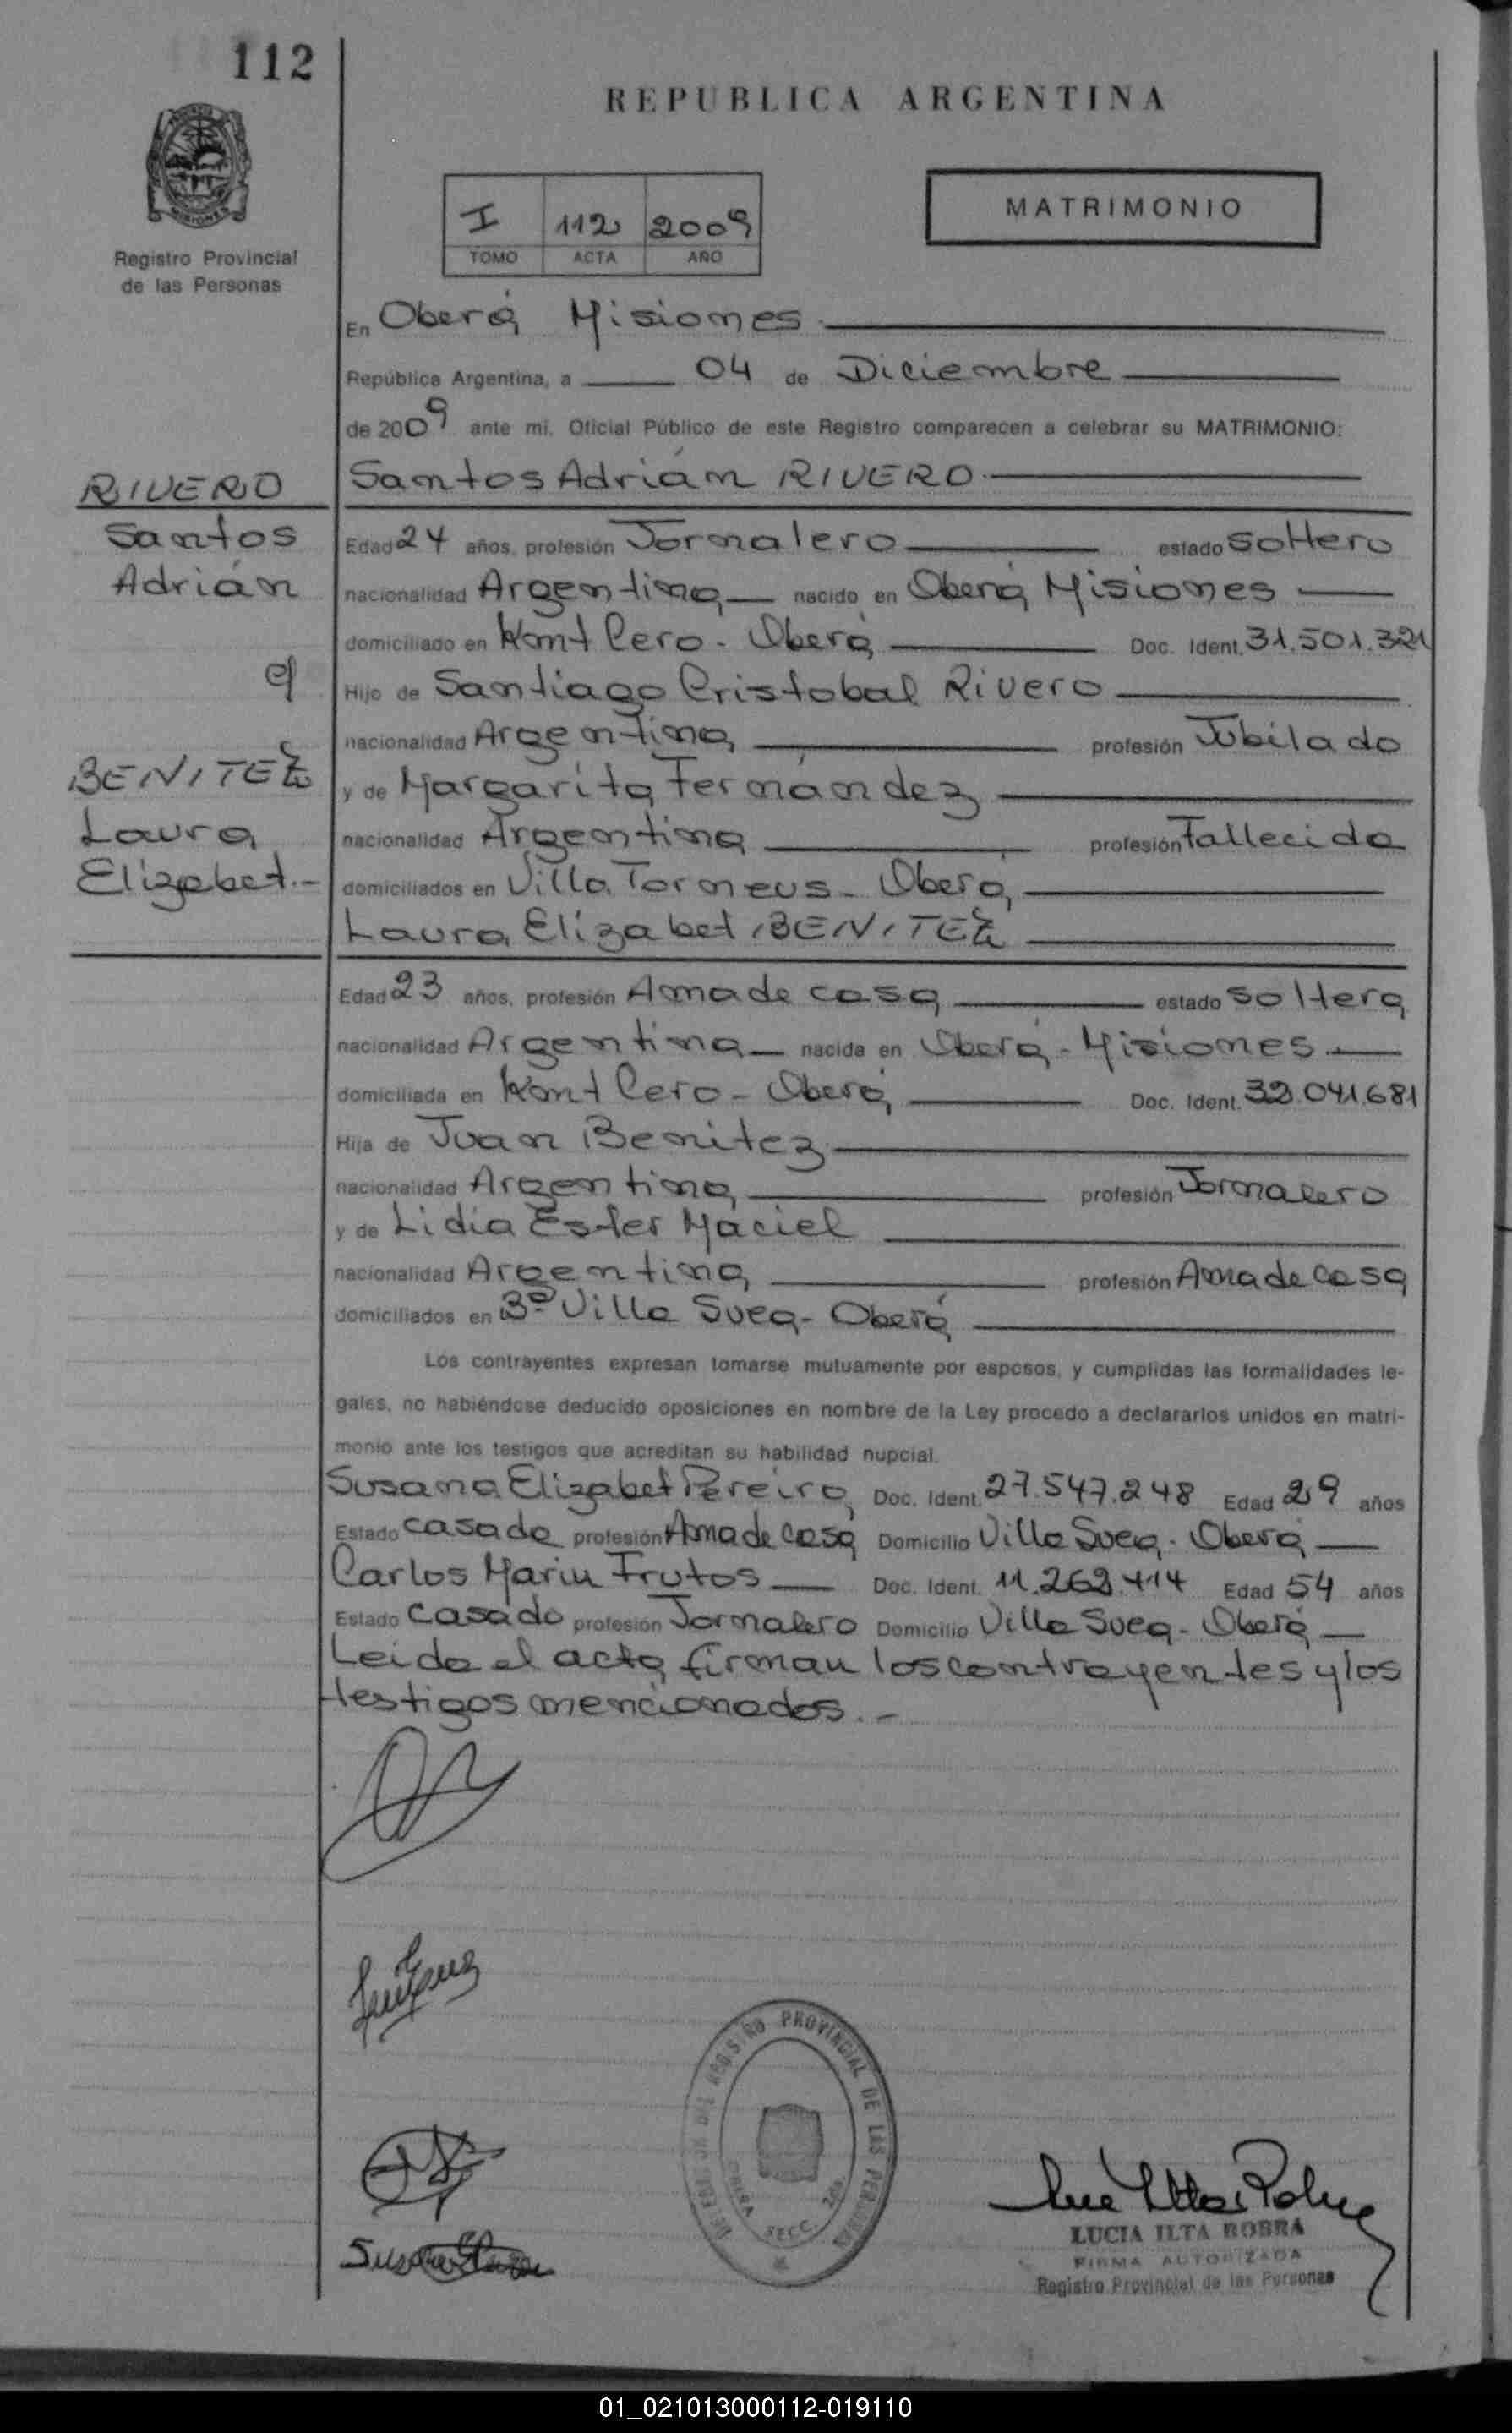 112
REPUBLICA ARGENTINA
MATRIMONIO
I 112 2009
TOMO ACTA AÑO
MISIONES
Registro Provincial
de las Personas
En Oberá Misiones
República Argentina, a 04 de Diciembre
de 2009 ante mi, Oficial Público de este Registro comparecen a celebrar su MATRIMONIO:
Santos Adrián RIVERO
RIVERO
Santos
Adrián
c/
BENITEZ
Laura
Elizabet.-
Edad 24 años, profesión Jornalero estado soltero
nacionalidad Argentina nacido en Oberá Misiones
domiciliado en Km Cero - Oberá Doc. Ident. 31.501.321
Hijo de Santiago Cristobal Rivero
nacionalidad Argentina profesión Jubilado
y de Margarita Fernández
nacionalidad Argentina profesión Fallecida
domiciliados en Villa Torneus - Oberá
Laura Elizabet BENITEZ
Edad 23 años, profesión Ama de casa estado soltera
nacionalidad Argentina nacida en Oberá - Misiones
domiciliada en Km Cero - Oberá Doc. Ident. 32.041.681
Hija de Juan Benitez
nacionalidad Argentina profesión Jornalero
y de Lidia Ester Maciel
nacionalidad Argentina profesión Ama de casa
domiciliados en Bº Villa Sueca - Oberá
Los contrayentes expresan tomarse mutuamente por esposos, y cumplidas las formalidades le-
gales, no habiéndose deducido oposiciones en nombre de la Ley procedo a declararlos unidos en matri-
monio ante los testigos que acreditan su habilidad nupcial.
Susana Elizabet Pereira Doc. Ident. 27.547.248 Edad 29 años
Estado casada profesión Ama de casa Domicilio Villa Sueca - Oberá
Carlos Frutos Doc. Ident. 11.269.414 Edad 54 años
Estado casado profesión Jornalero Domicilio Villa Sueca - Oberá
Leida el acta firman los contrayentes y los
testigos mencionados.-
REGISTRO PROVINCIAL DE LAS PERSONAS
SECC.
LUCIA ILTA BOBRA
FIRMA AUTORIZADA
Registro Provincial de las Personas
01_021013000112-019110